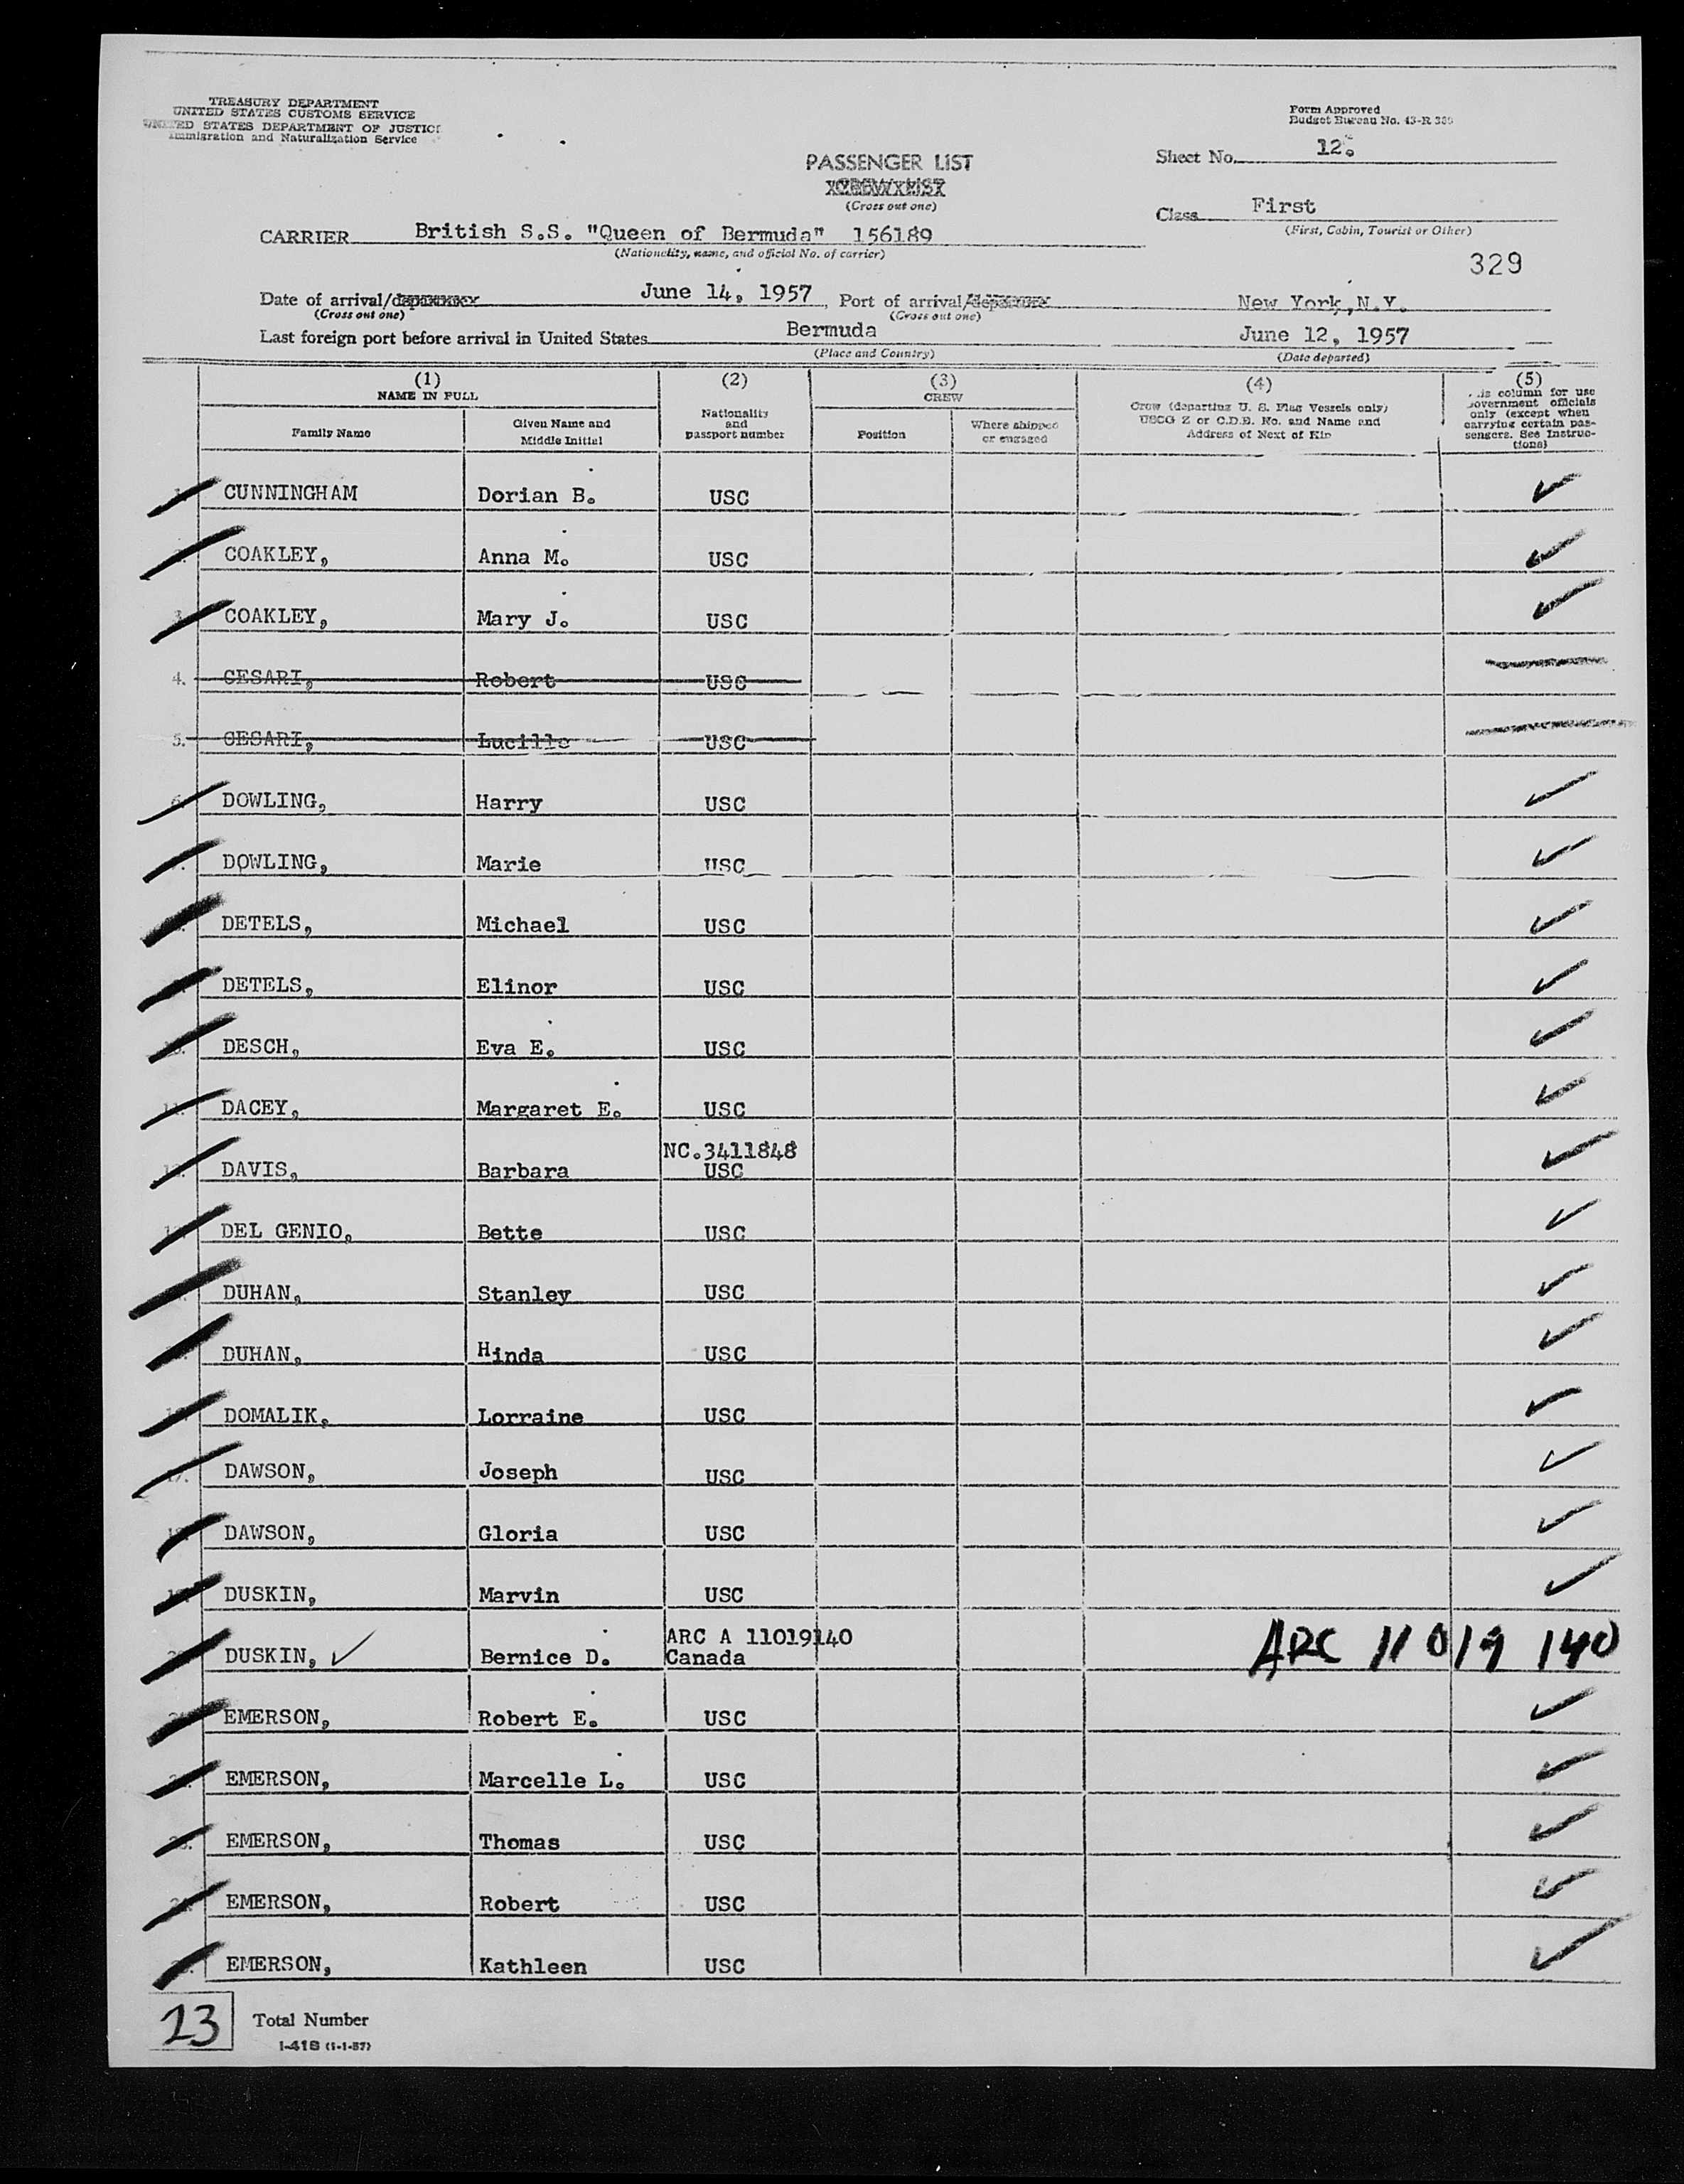 TREASURY DEPARTMENT
UNITED STATES CUSTOMS SERVICE
UNITED STATES DEPARTMENT OF JUSTICE
Immigration and Naturalization Service
Form Approved
Budget Bureau No. 43-R
Sheet No. 12.
PASSENGER LIST
(Cross out one)
Class First
(First, Cabin, Tourist or Other)
CARRIER British S.S. "Queen of Bermuda" 156189
(Nationality, name, and official No. of carrier)
329
Date of arrival/ June 14, 1957, Port of arrival/ New York, N.Y.
(Cross out one) (Cross out one)
Last foreign port before arrival in United States Bermuda June 12, 1957
(Place and Country) (Date departed)
(1) NAME IN FULL
Family Name
Given Name and Middle Initial
(2)
Nationality and passport number
(3) CREW
Position
Where shipped or engaged
(4)
Crew (departing U. S. Flag Vessels only) USCG Z or C.D.B. No. and Name and Address of Next of Kin
(5)
This column for use government officials only (except when carrying certain passengers. See Instructions)
CUNNINGHAM Dorian B. USC
COAKLEY, Anna M. USC
3. COAKLEY, Mary J. USC
4. CESARI, Robert USC
5. CESARI, Lucille USC
6. DOWLING, Harry USC
DOWLING, Marie USC
DETELS, Michael USC
DETELS, Elinor USC
DESCH, Eva E. USC
11. DACEY, Margaret E. USC
NC.3411848
12. DAVIS, Barbara USC
DEL GENIO, Bette USC
DUHAN, Stanley USC
DUHAN, Hinda USC
DOMALIK, Lorraine USC
17. DAWSON, Joseph USC
DAWSON, Gloria USC
DUSKIN, Marvin USC
ARC A 11019140
DUSKIN, Bernice D. Canada ARC 11 019 140
EMERSON, Robert E. USC
EMERSON, Marcelle L. USC
EMERSON, Thomas USC
EMERSON, Robert USC
EMERSON, Kathleen USC
23 Total Number
I-418 (1-1-57)